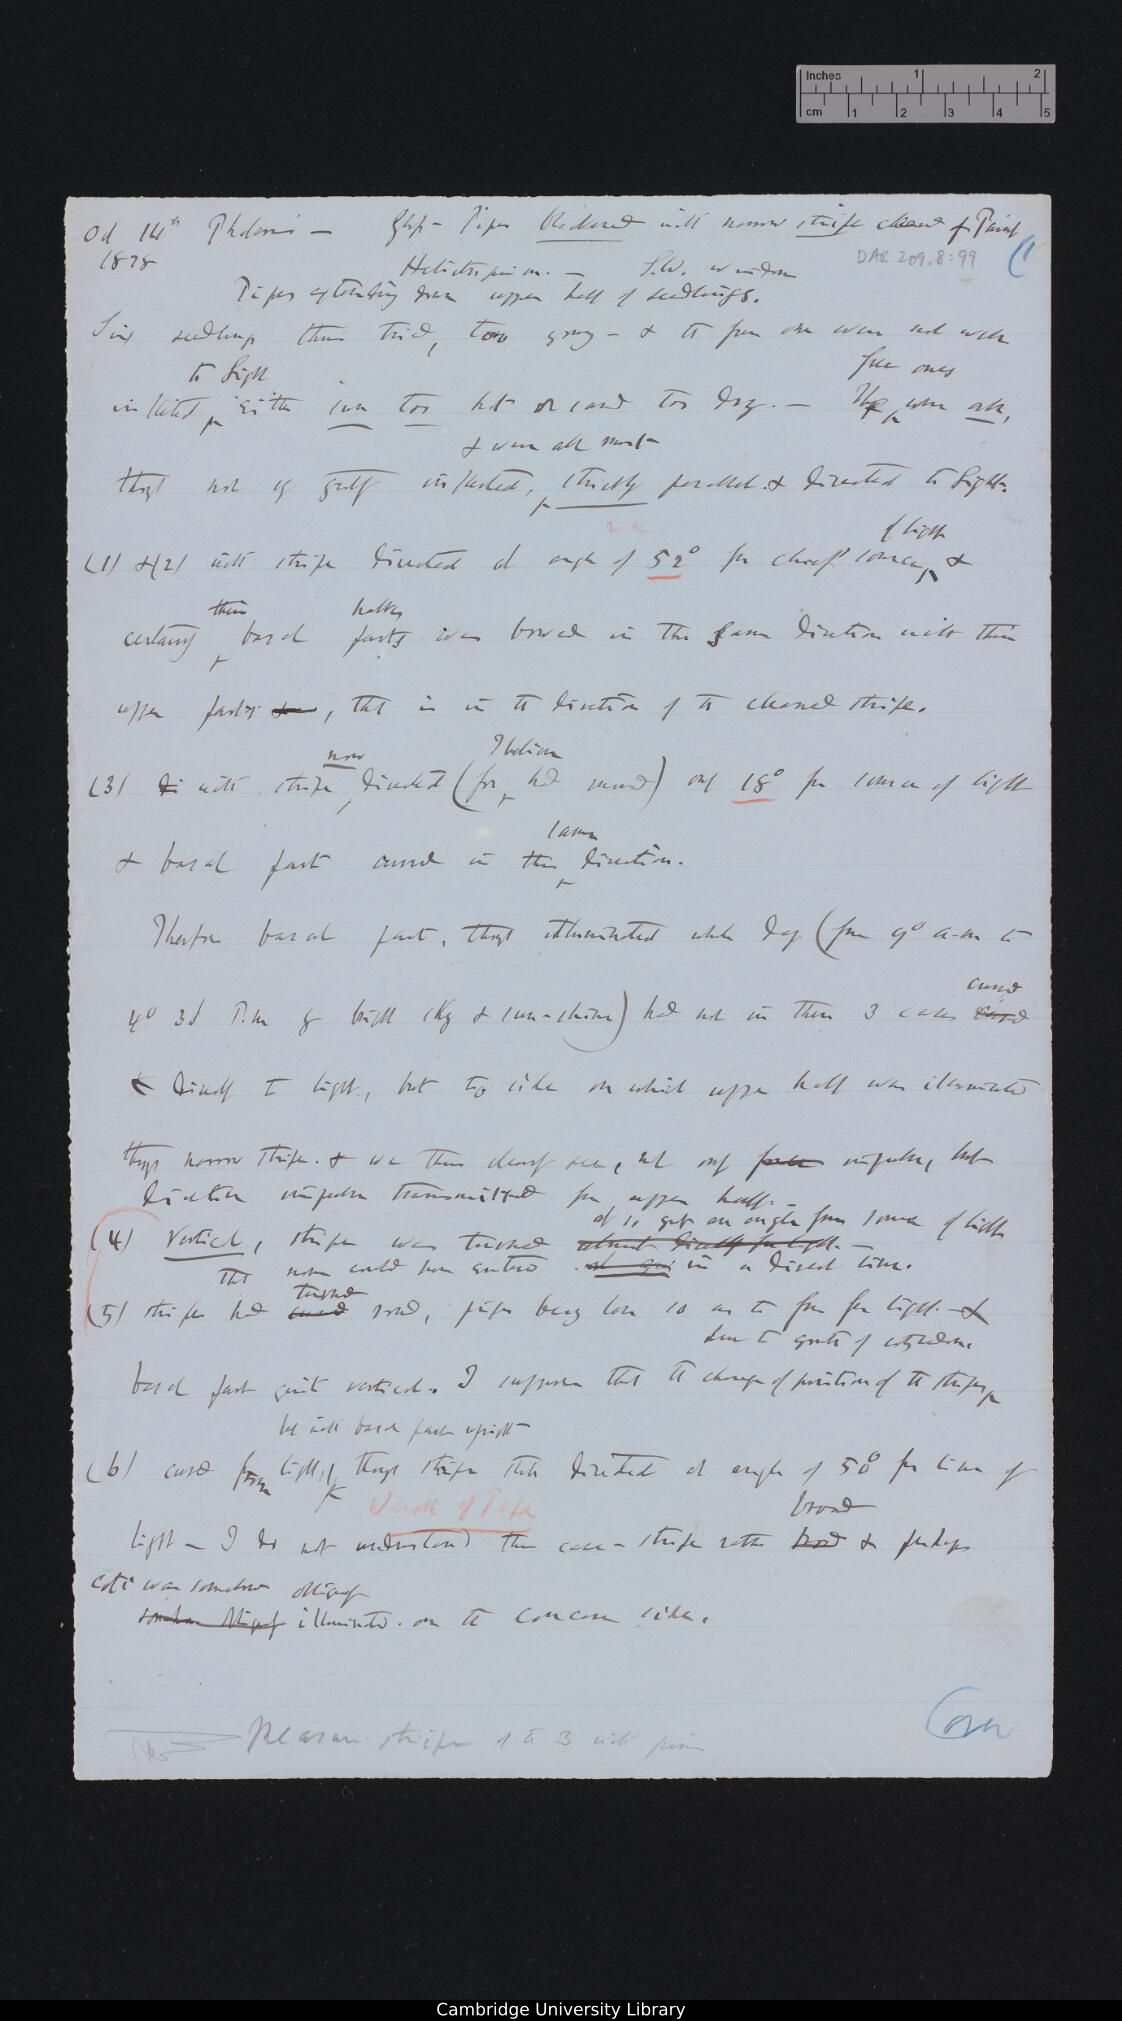 Inches 1 2
cm 1 2 3 4 5
Oct 14th Phalaris — Glass Pipes blackened with narrow stripe cleaned of Paint (1
1878 Heliotropism. — S.W. window DAR 209.8:99
Pipes extending down upper half of seedlings.
Six seedlings thus tried, too young — & the free one were not well
to light free ones
inflected, either sun too hot or sand too dry. — The, were all,
& were all most
though not greatly inflected, strictly parallel & directed to light.
of light
(1) & (2) with stripe directed at angle of 52° from chief source, &
their halves
certainly basal parts was bowed in the same direction with their
upper parts, that is in the direction of the cleaned stripe.
now Phalaris
(3) with stripe directed (for had moved) only 18° from source of light
same
& basal part curved in this direction.
Therefore basal part, though illuminated whole day (from 9° a.m to
curved
4° 30 P.m of bright sky & sun-shine) had not in these 3 cases curved
directly to light, but to side on which upper half was illuminated
through narrow stripe. & we thus clearly see, not only impulse, but
direction impulse transmitted from upper half. —
at so great an angle from source of light
(4) Vertical, stripe was turned almost directly from light. —
that none could have entered in a direct line.
turned
(5) stripe had round, pipe being loose so as to from light. &
due to growth of cotyledon
basal part quite vertical. I suppose that the change of position of the stripe
but with basal part upright
(6) curved from light, though stripe still directed at angle of 50° from line of
Width of Pipe
broad
light — I do not understand this case — stripe rather broad & perhaps
cot: was somehow obliquely
somehow obliquely illuminated on the concave side.
Measure stripe of the 3 with
(over
Cambridge University Library